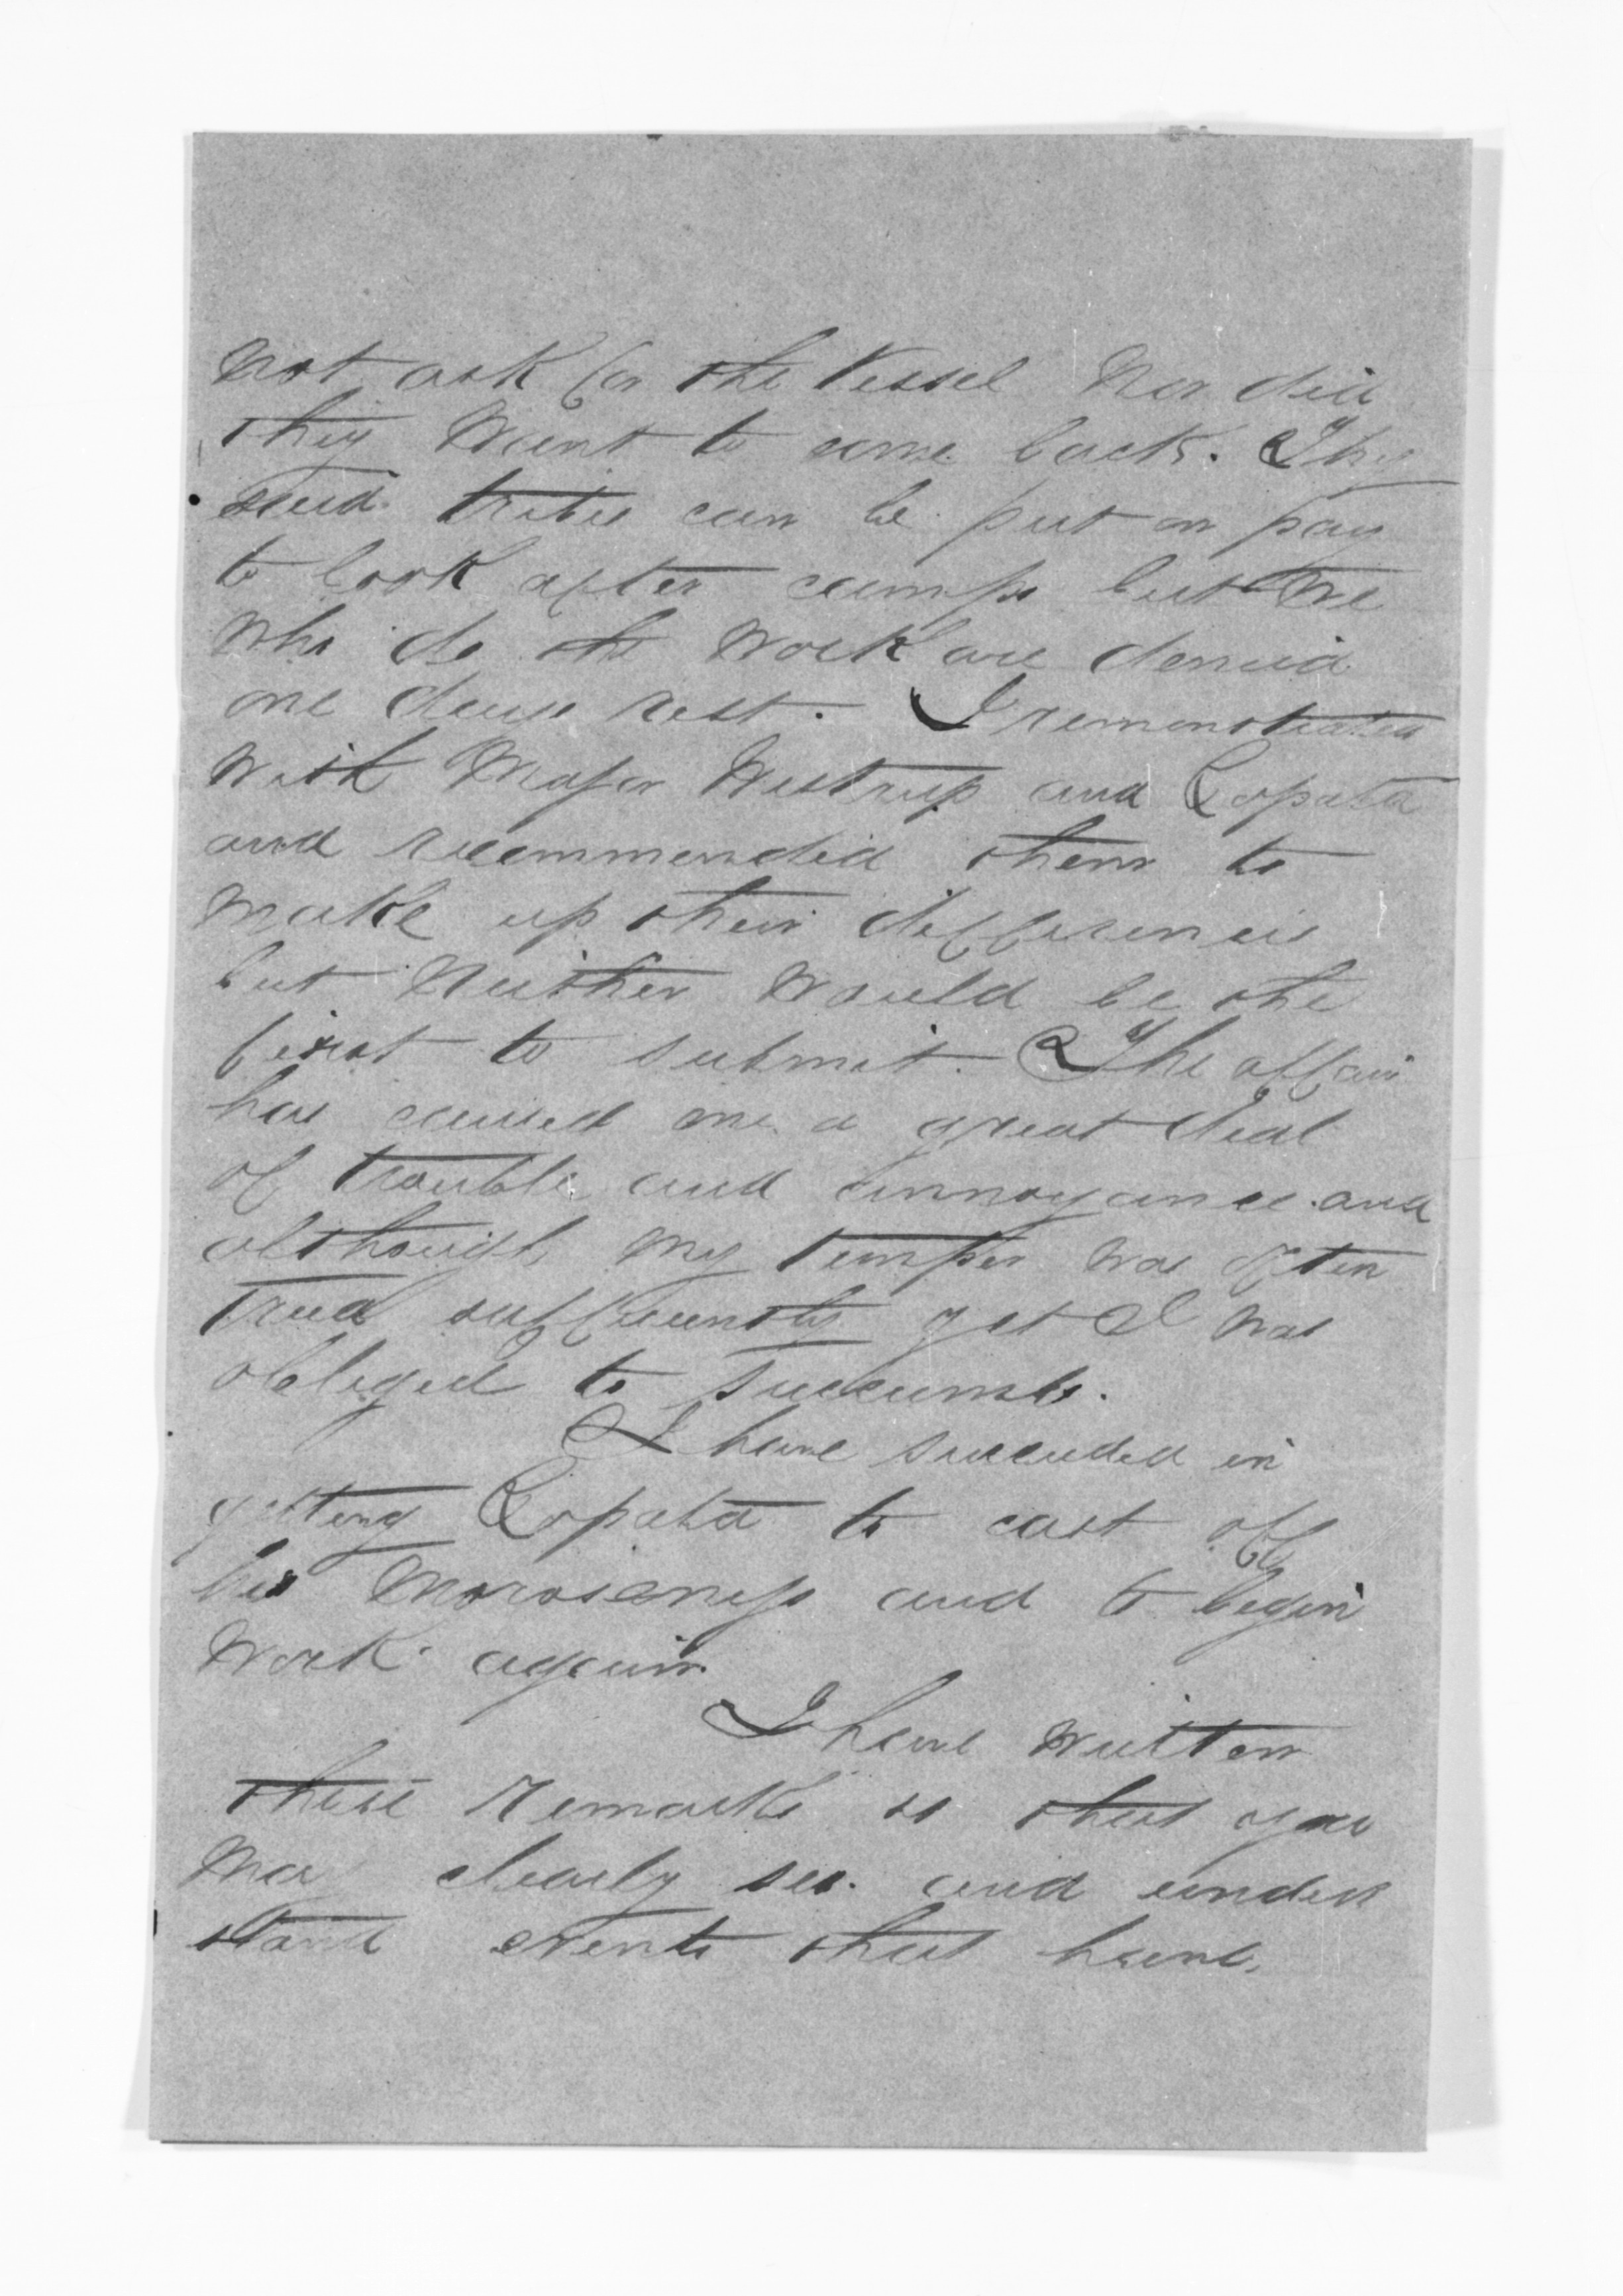 not ask for the Vessel nor did
they want to come back. They
said tribes can be put on pay
to look after camps but we
who do the work are denied
one days rest. I remonstrated
with Major Westrup and Ropata
and recommended them to
make up their differences
but neither would be the
first to submit. The affair
has caused me a great deal
of trouble and annoyance and
although my temper was often
tried sufficiently yet I was
obliged to succumb.
I have succeeded in
getting Ropata to cast off
his moroseness and to begin
work again.
I have written
these remarks so that you
may clearly see and under
stand events that have